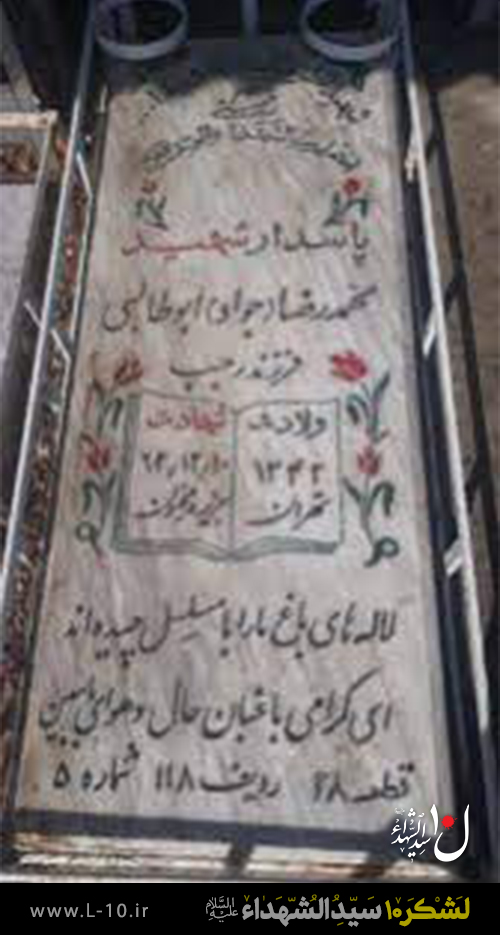 پاسدار شهید
محمدرضا (جواد) ابوطالبی
فرزند رجب
ولادت
۱۳۴۲
تهران
شهادت
۶۲/۱۲/۱۰
جزیره مجنون
لاله های باغ ما را با مسلسل چیده اند
ای گرامی باغبان حال و هوای ما ببین
قطعه ۲۸ ردیف ۱۱۸ شماره ۵
ل۱۰ سیدالشهداء
www.L-10.ir
لشکر۱۰ سیّدُالشّهداء علیه‌السلام